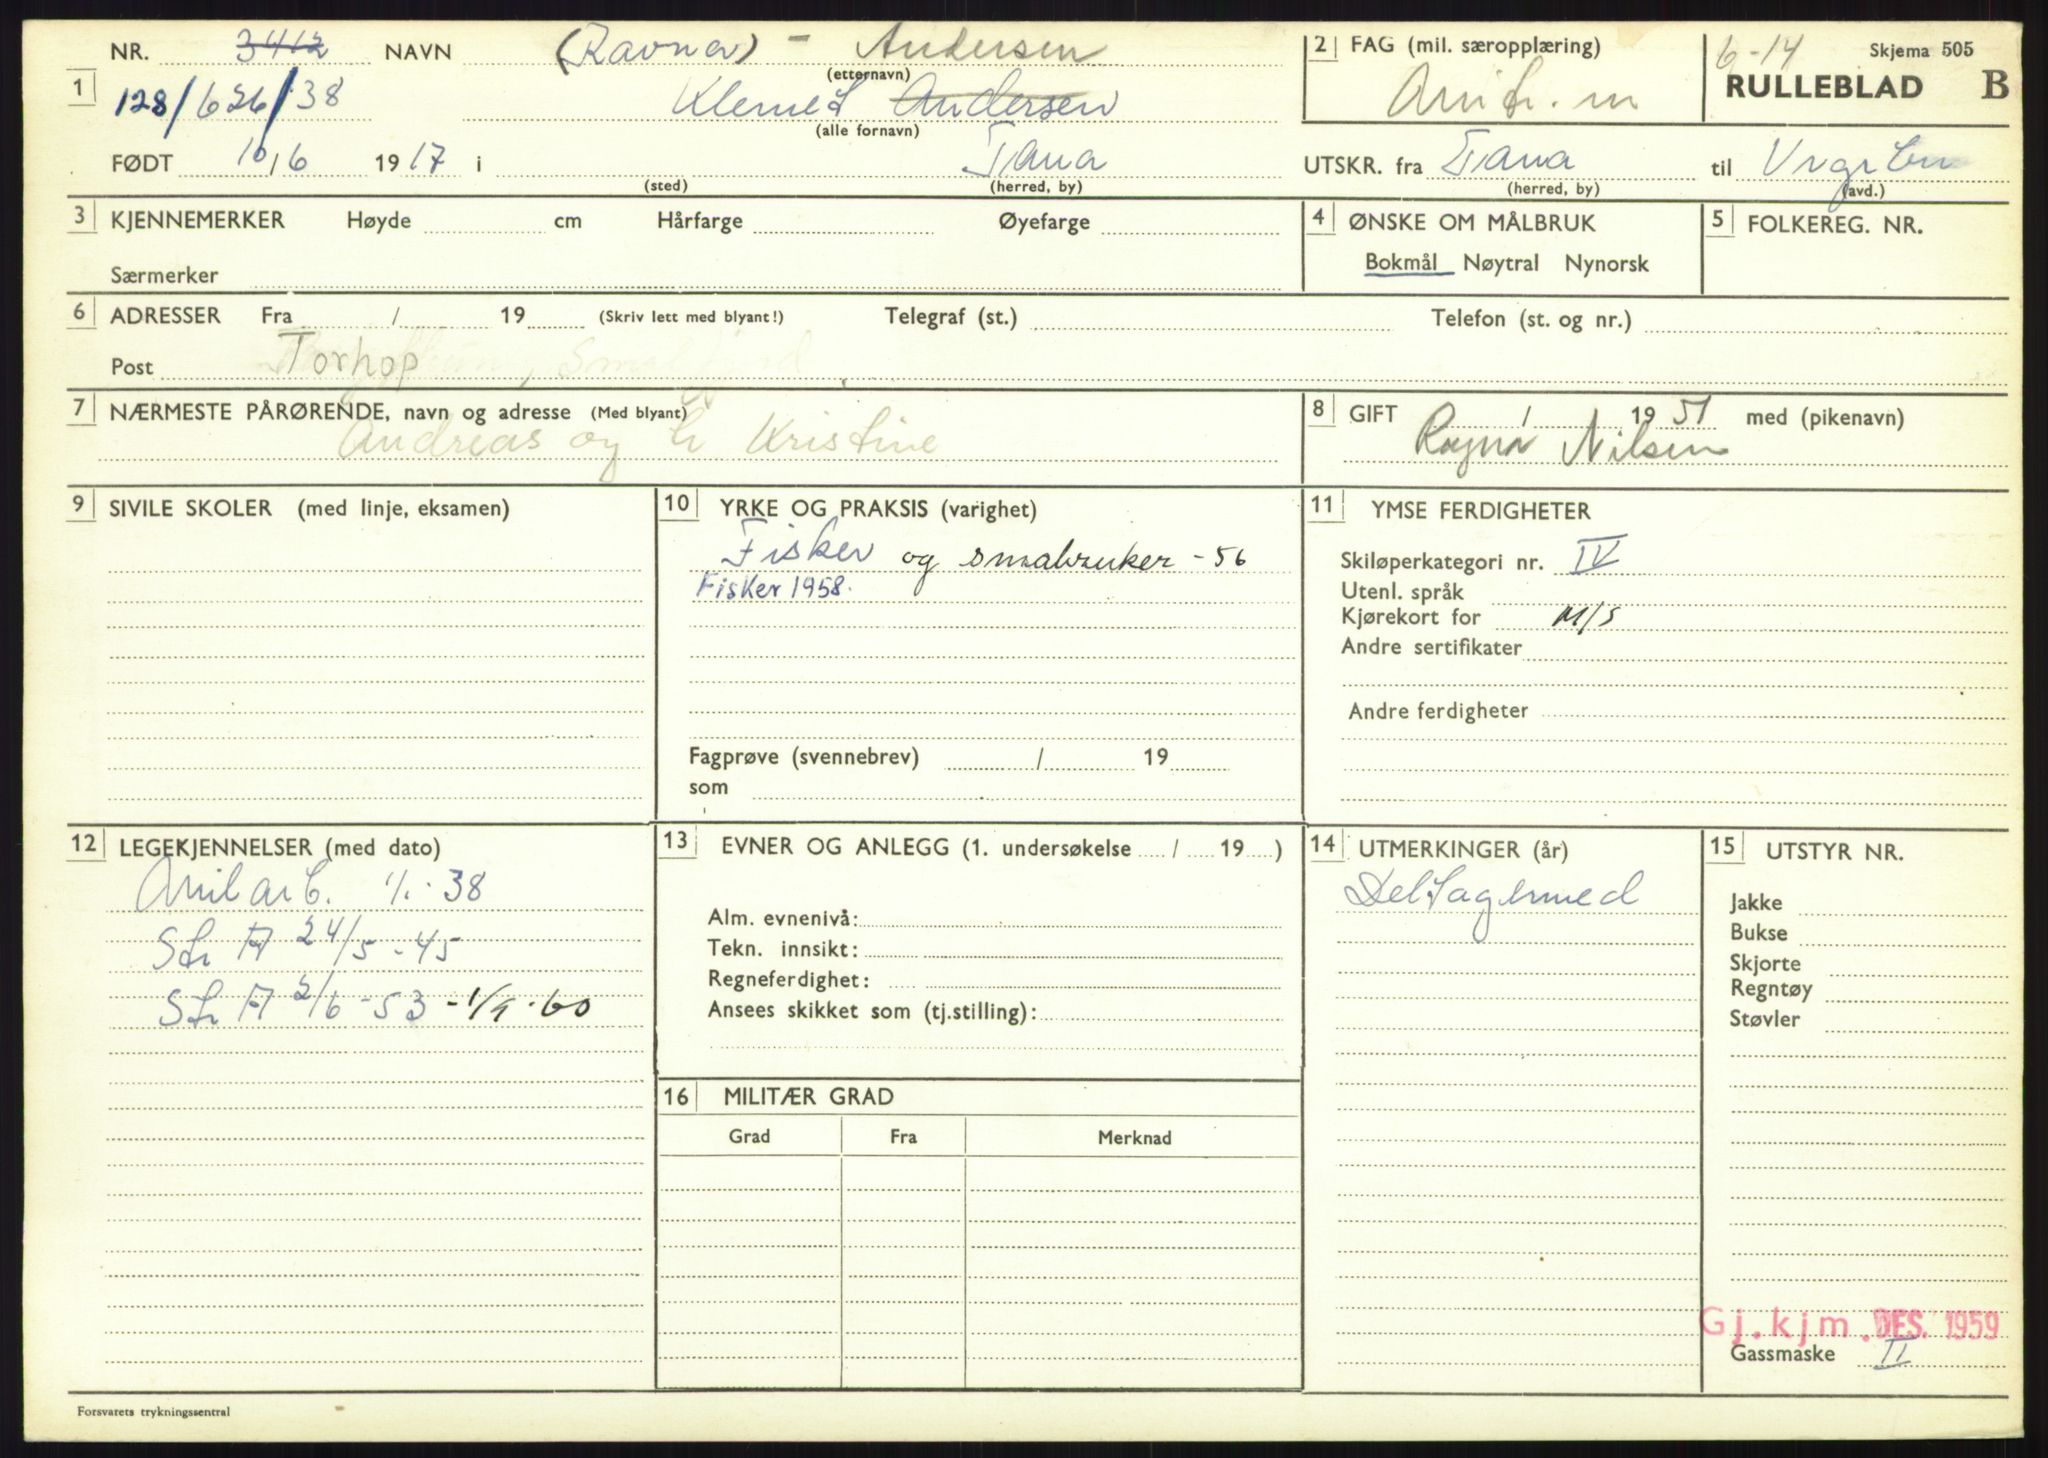 NR. 3412 NAVN (Ravna) - Andersen
(etternavn)
1 128/626/38 Klemet Andersen
(alle fornavn)
FØDT 10/6 1917 i Tana
(sted) (herred, by)
2 FAG (mil. særopplæring)
Mitr. m
6-14 Skjema 505
RULLEBLAD B
UTSKR. fra Tana til
(herred, by) (avd.)
3 KJENNEMERKER Høyde cm Hårfarge Øyefarge
Særmerker
4 ØNSKE OM MÅLBRUK
Bokmål Nøytral Nynorsk
5 FOLKEREG. NR.
6 ADRESSER Fra / 19 (Skriv lett med blyant!) Telegraf (st.) Telefon (st. og nr.)
Post Torhop
7 NÆRMESTE PÅRØRENDE, navn og adresse (Med blyant)
Andreas og Kristine
8 GIFT / 1951 med (pikenavn)
Ragna Nilsen
9 SIVILE SKOLER (med linje, eksamen)
10 YRKE OG PRAKSIS (varighet)
Fisker og småbruker -56
Fisker 1958.
Fagprøve (svennebrev) / 19
som
11 YMSE FERDIGHETER
Skiløperkategori nr. IV
Utenl. språk
Kjørekort for M/S
Andre sertifikater
Andre ferdigheter
12 LEGEKJENNELSER (med dato)
Mil arb. 38
Str A 24/5 - 45
Str A 2/6 - 53 - 1/9 - 60
13 EVNER OG ANLEGG (1. undersøkelse / 19 )
Alm. evnenivå:
Tekn. innsikt:
Regneferdighet:
Ansees skikket som (tj.stilling):
14 UTMERKINGER (år)
Deltagermed
15 UTSTYR NR.
Jakke
Bukse
Skjorte
Regntøy
Støvler
Gj.kjm. DES. 1959
Gassmaske II
16 MILITÆR GRAD
Grad Fra Merknad
Forsvarets trykningssentral